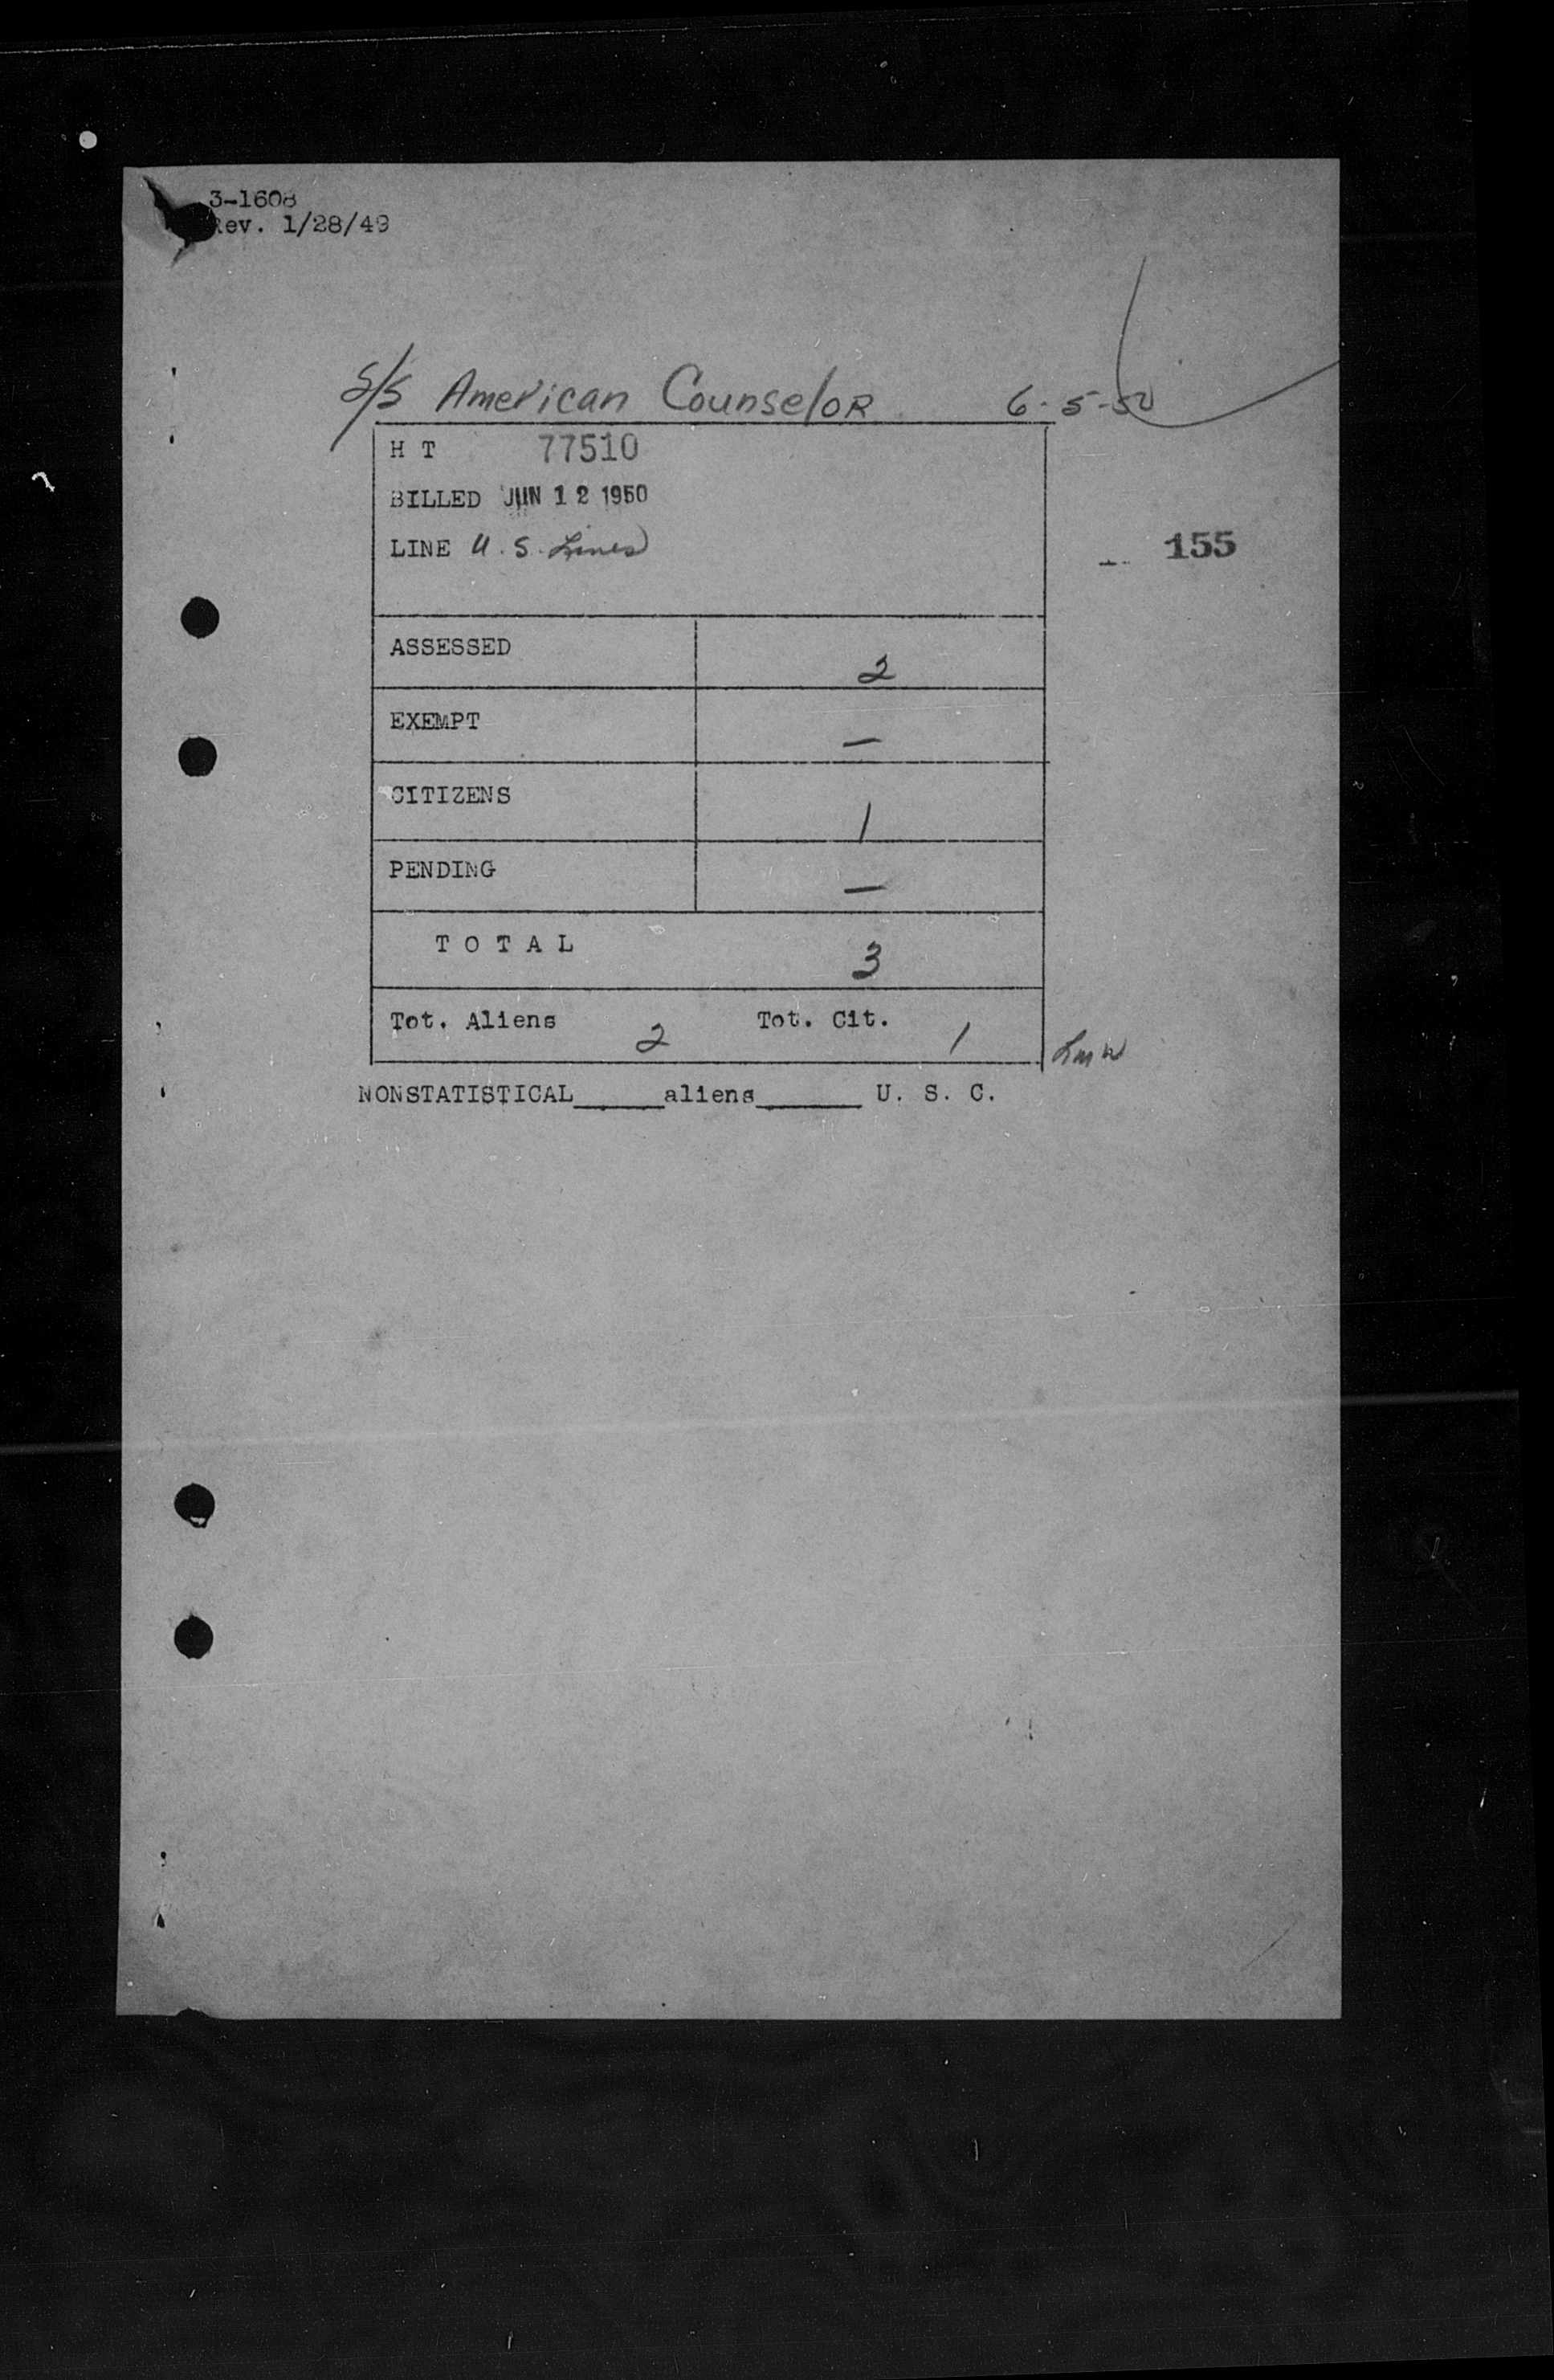 3-1608
Rev. 1/28/49
S/S American Counselor 6-5-50
H T 77510
BILLED JUN 12 1950
LINE U.S. Lines
155
ASSESSED 2
EXEMPT —
CITIZENS 1
PENDING —
T O T A L 3
Tot. Aliens 2 Tot. Cit. 1
NONSTATISTICAL_____aliens______ U. S. C.